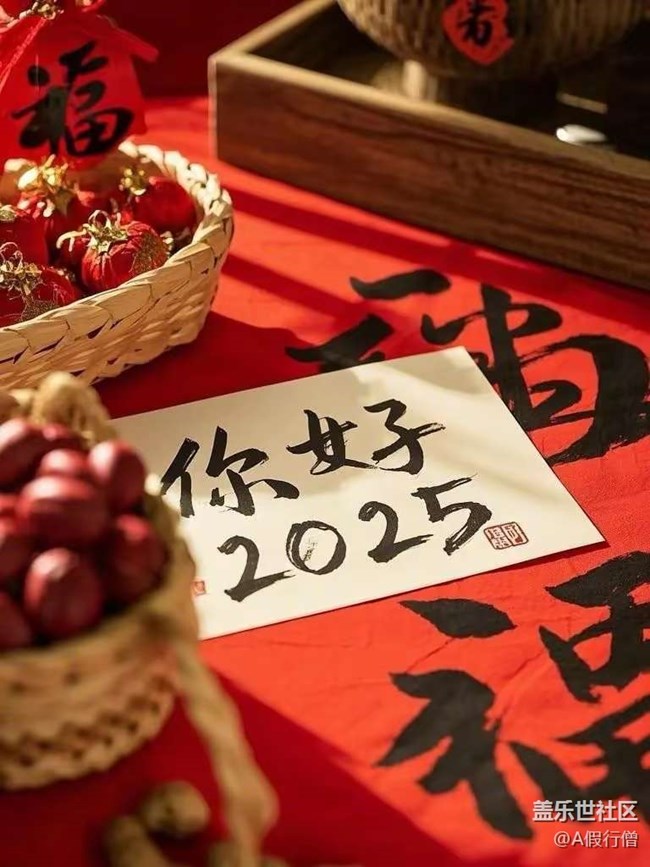 福
你好
2025
福
福
盖乐世社区
@A假行僧